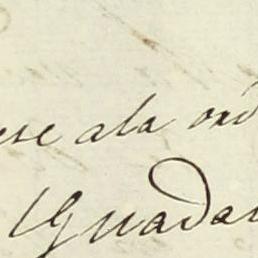 ese ala ord
Guadal